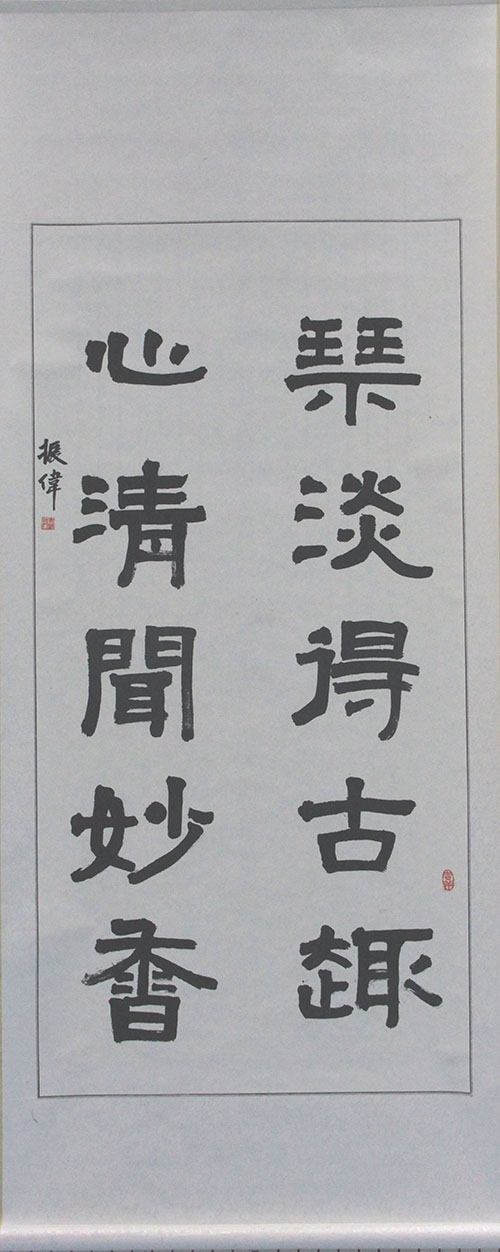 琹淡得古趣
心清聞妙香
振偉